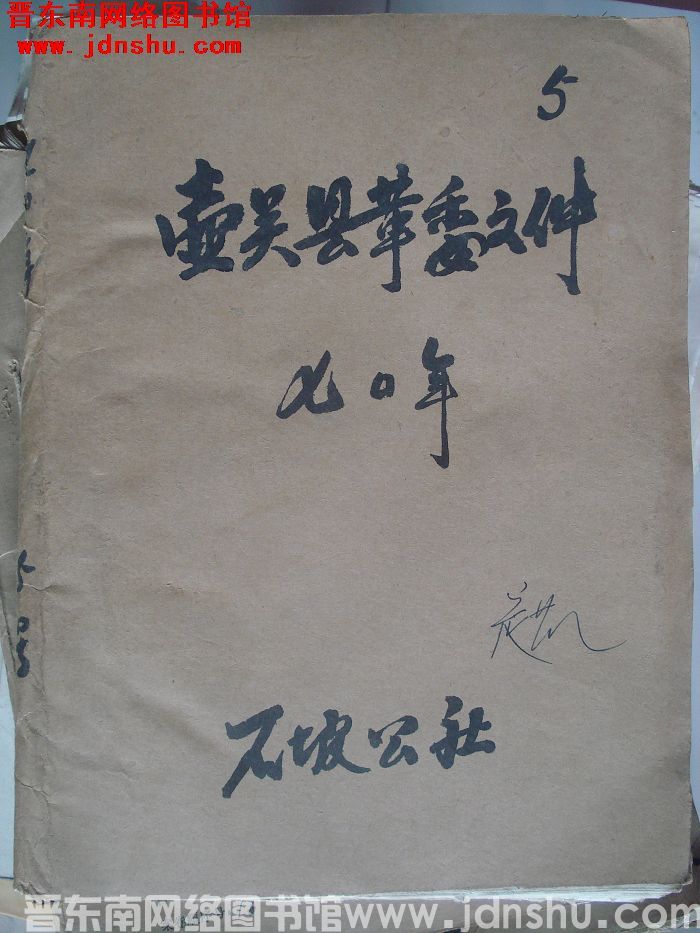 晋东南网络图书馆
www.jdnshu.com
5
壶关县革委文件
七〇年
5号
石坡公社
晋东南网络图书馆www.jdnshu.com